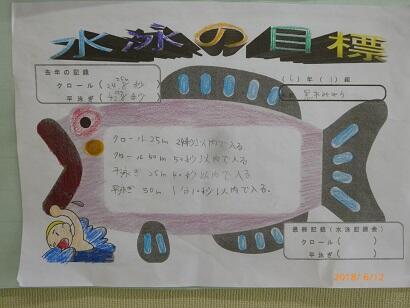 水泳の目標
去年の記録
クロール( 秒)
平泳ぎ( 秒)
(6)年( )組
クロール 25m 秒以内で入る
クロール 50m 50秒以内で入る
平泳ぎ 25m 40秒以内で入る
平泳ぎ 50m 1分10秒以内で入る。
最終記録(水泳記録会)
クロール( )
平泳ぎ( )
2018/6/12